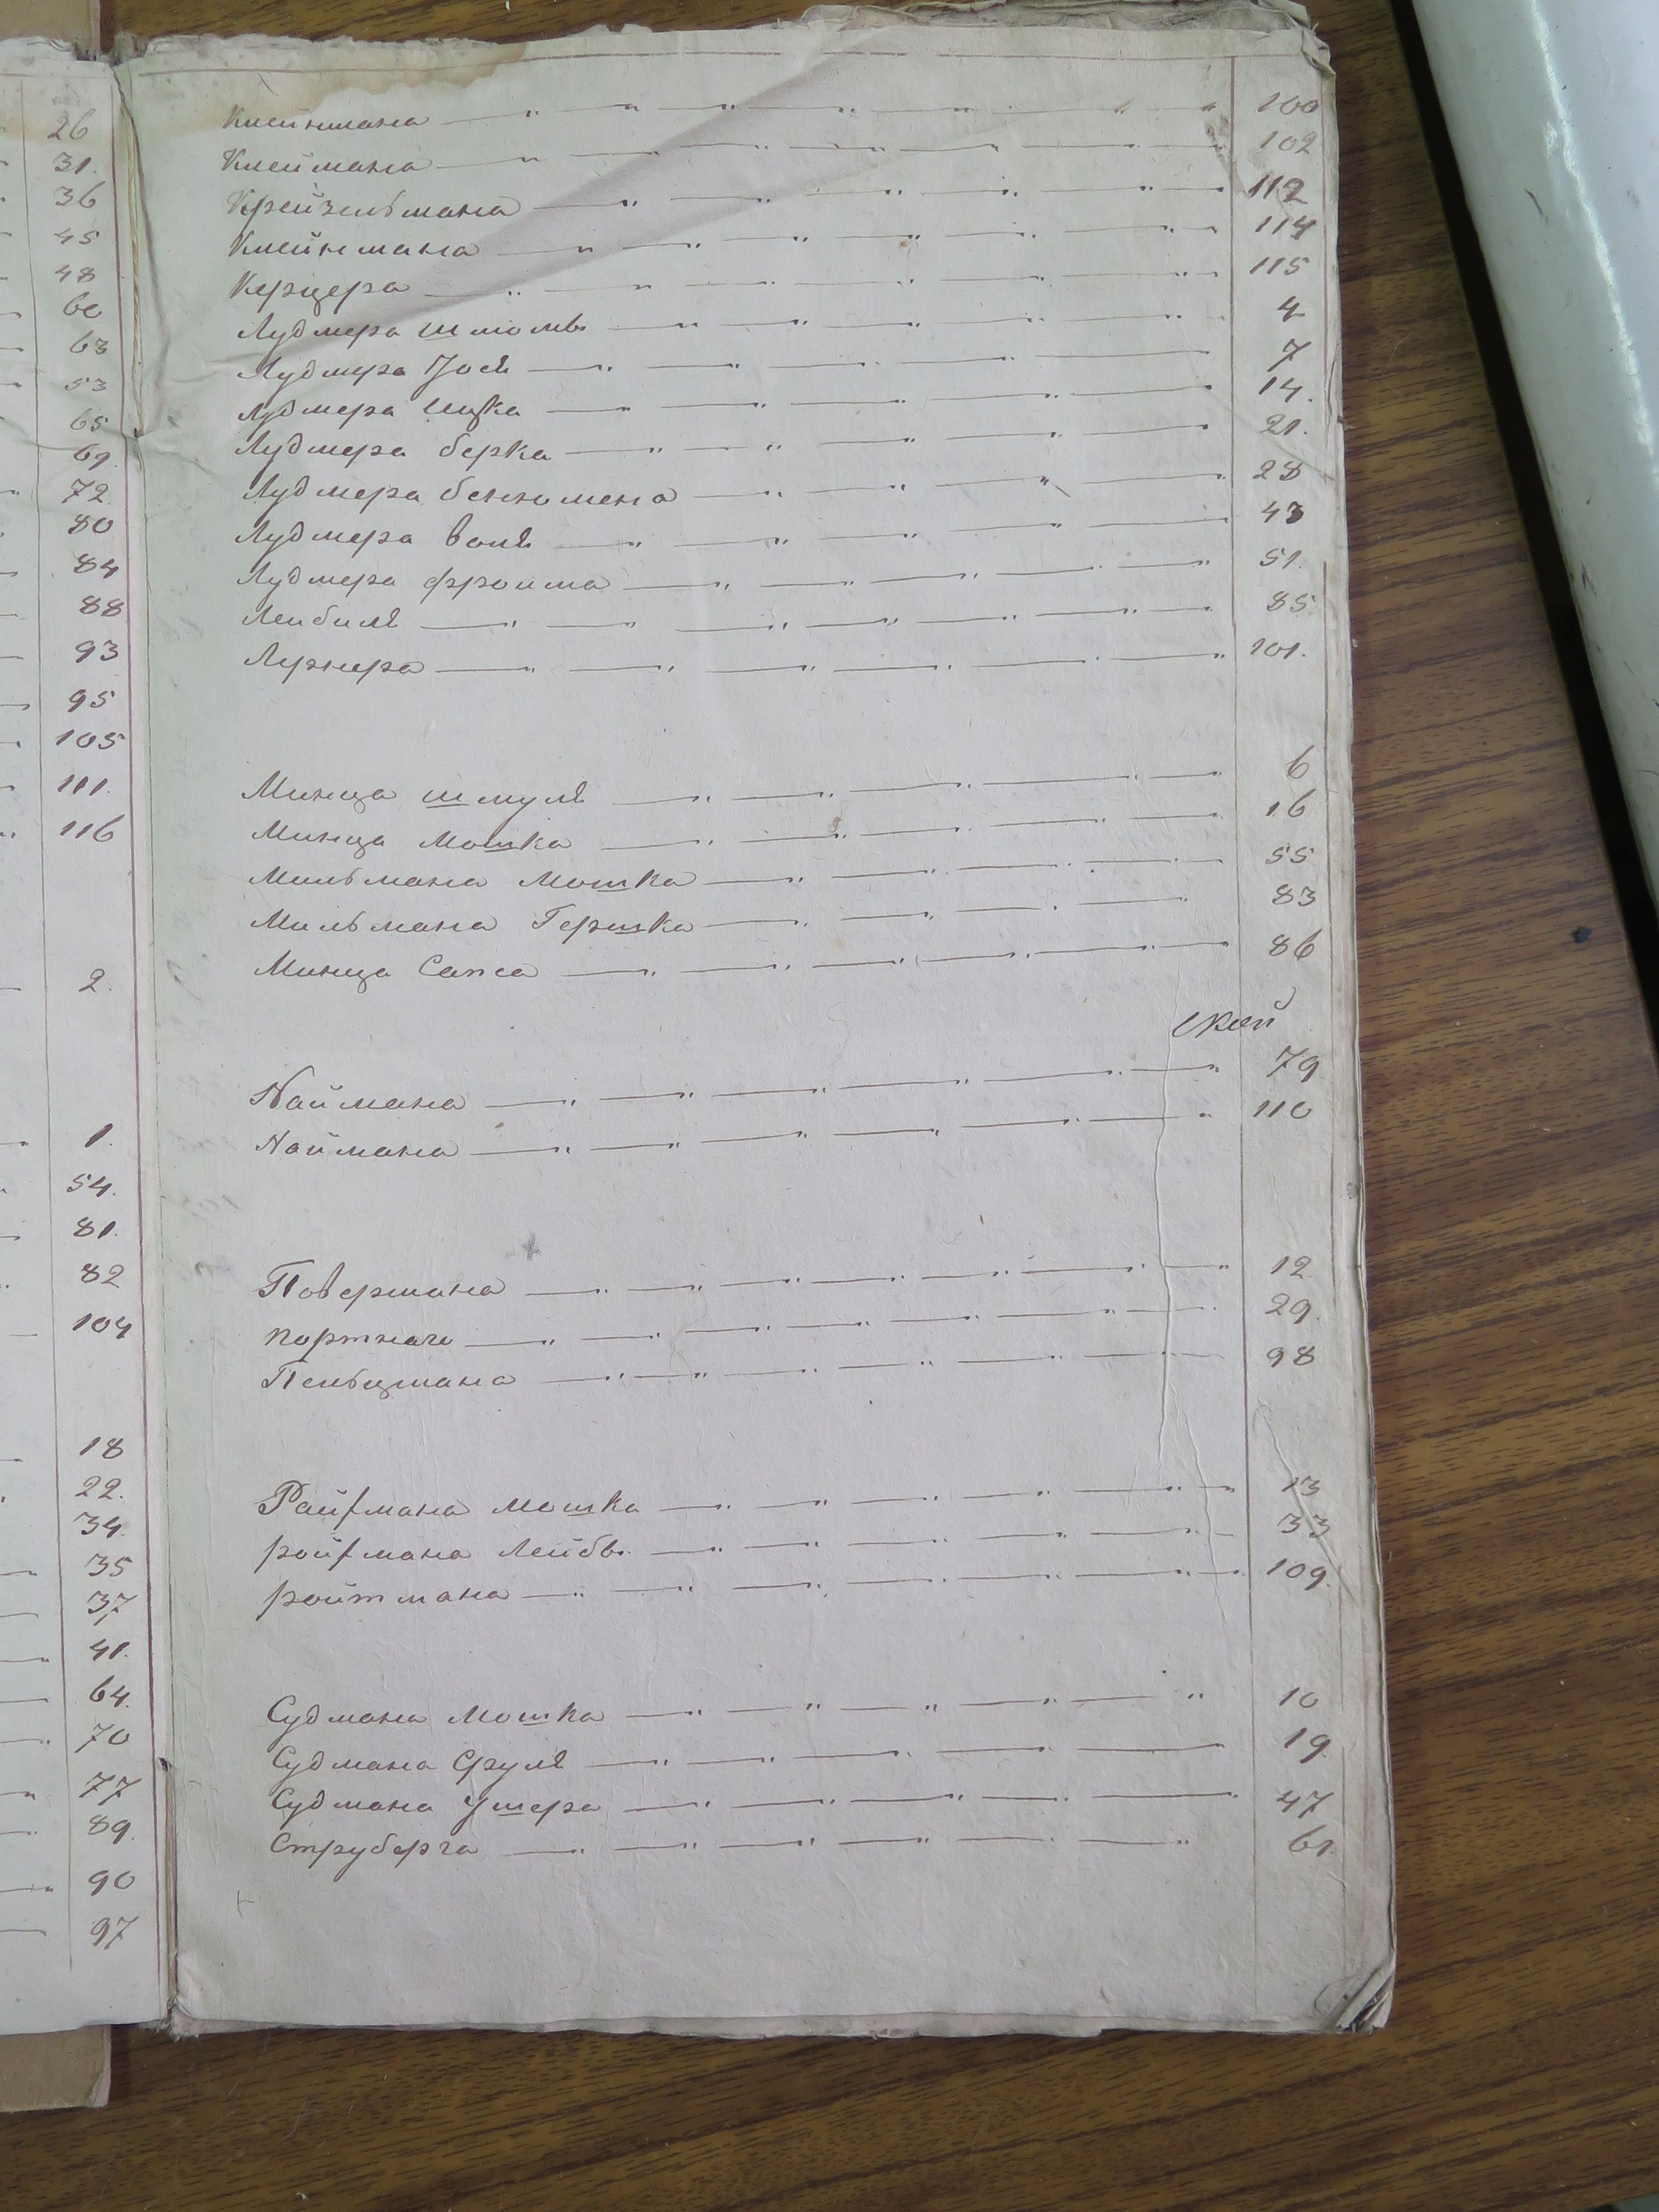 26
31.
36
45
48
60
63
53
65
69.
72
80
84
88
93
95
105
111.
116
2.
1.
54.
81.
82
104
18
22.
34.
35
37
41.
64.
70
77
89.
90
97
Клейнмана 100
Клеймана 102
Крейзельмана 112
Клейнмана 114
Керцера 115
Лудмера Шмомъ 4
Лудмера Іося 7
Лудмера Ицка 14.
Лудмера берка 21.
Лудмера бенюмена 28
Лудмера Воля 43
Лудмера фроима 51.
Лейбиля 85
Лернера 101.
Минца Шмуля 6
Минца Мошка 16
Мильмана Мошка 55
Мильмана Гершка 83
Минца Сапса 86
Наймана 79
Наймана 110
Повермана 12
портнаго 29.
Пельцмана 98
Райфмана Мошка 13
ройфмана Лейбы 33
ройтмана 109.
Судмана Мошка 10
Судмана Сруля 19
Судмана Ушера 47
Струберга 61.